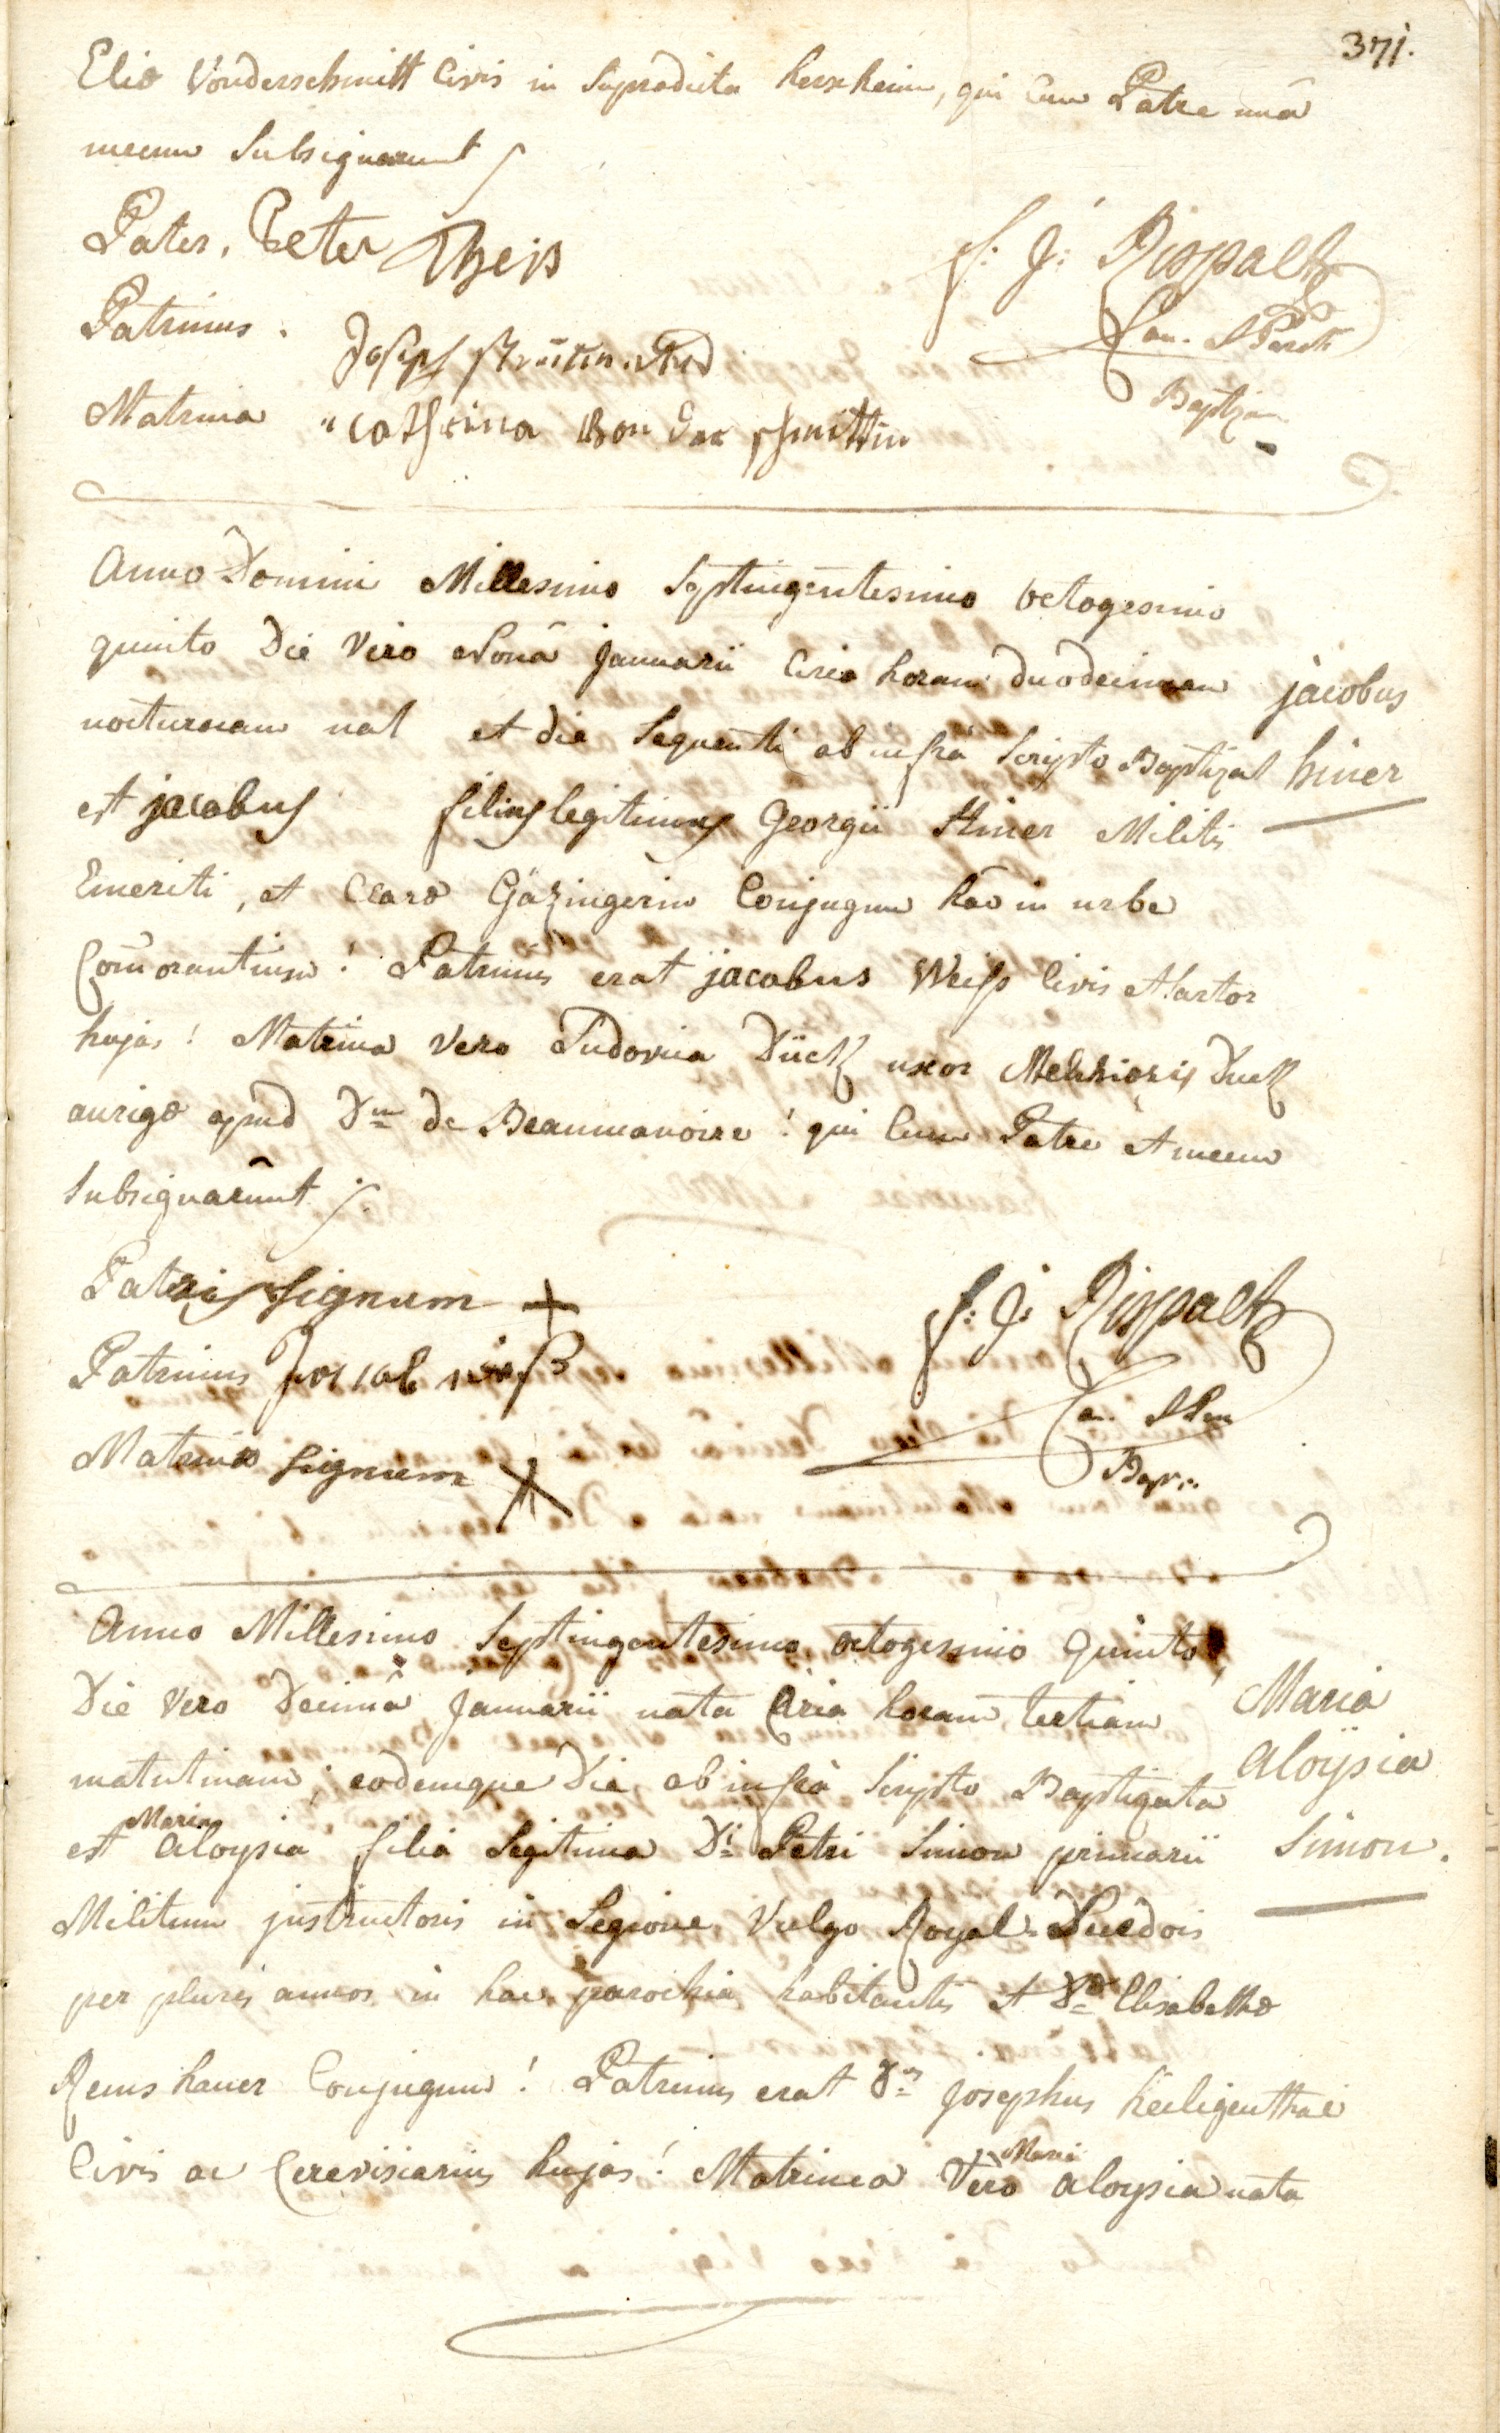 371.
Eliæ Vonderschmitt Civis in supradicta herxheim, qui cum Patre unà
mecum subsignarunt
Pater. Peter Theis
F. J. Rispalt
Can. & Paroch
Patrinus. Joseph
Matrina Catherina Von der schmittin
Baptizans
Anno Domini Millesimo Septingentesimo octogesimo
quinto Die Vero Nonâ Januarii Circa horam duodecimam
nocturnam nat et die sequenti ab infrà Scripto Baptizat
est jacobus filius legitimus Georgii Hiner Militis
Emeriti, et Claræ Gäzingerin Conjugum hac in urbe
Com̄orantium! Patrinus erat jacobus Weiss Civis Sartor
hujas! Matrina Vero Ludovica Dück uxor Melchioris Duck
aurigæ apud Dnm de Beaumanoire! qui Cum Patre et mecum
subsignarūnt
jacobus
hiner
Patris signum +
F. J. Rispalt
Patrinus Jacob
Can.
Matrinæ signum X
Bapt.
Anno Millesimo Septingentesimo octogesimo Quinto
Die Vero Decimâ Januarii nata Circa horam tertiam
matutinam, eodemque Die ab infrà Scripto Baptizata
est Maria Aloysia filia Legitima Di Petri Simon primarii
Militum instructoris in Legione Vulgo Royal-Suédois
per plures annos in hac parochia habitantis et Dæ Elisabethæ
Remshauer Conjugum! Patrinus erat Dns Josephus heiligenthal
Civis ac Cerevisiarius hujas! Matrinea Vero Maria Aloysia nata
Maria
Aloÿsia
Simon.